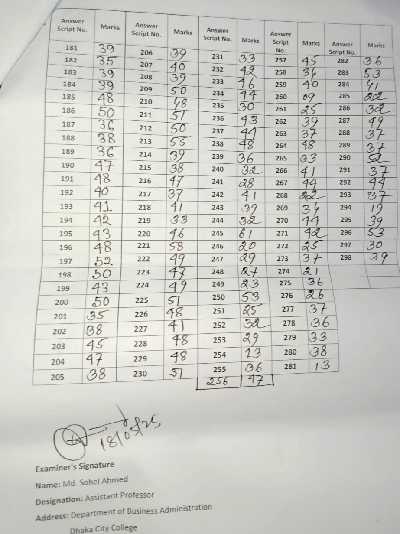 Answer Script No. Marks Answer Script No. Marks Answer Script No. Marks Answer Script No. Marks Answer Script No. Marks
181 39 206 39 231 33 257 45 282 36
182 35 207 40 232 42 258 283 53
183 39 208 39 233 46 259 40 284 41
184 39 209 50 234 44 260 09 285
185 48 210 48 235 30 261 25 286 32
186 50 211 51 236 43 262 39 287 49
187 36 212 50 237 44 263 37 288 37
188 38 213 55 238 48 264 48 289 37
189 36 214 39 239 36 265 33 290 52
190 47 215 38 240 32 266 41 291 37
191 48 216 47 241 28 267 44 292 44
192 40 217 37 242 41 268 293 37
193 41 218 41 243 39 269 294 19
194 42 219 33 244 32 270 44 295 39
195 43 220 46 245 271 42 296 53
196 48 221 58 246 20 272 25 297 30
197 52 222 49 247 29 273 37 298 29
198 50 223 47 248 27 274 21
199 43 224 49 249 23 275 36
200 50 225 51 250 53 276 26
201 35 226 48 251 25 277 37
202 38 227 41 252 32 278 36
203 45 228 48 253 29 279 33
204 47 229 48 254 13 280 38
205 38 230 51 255 36 281 13
256 47
18/05/25
Examiner's Signature
Name: Md. Sohel Ahmed
Designation: Assistant Professor
Address: Department of Business Administration
Dhaka City College